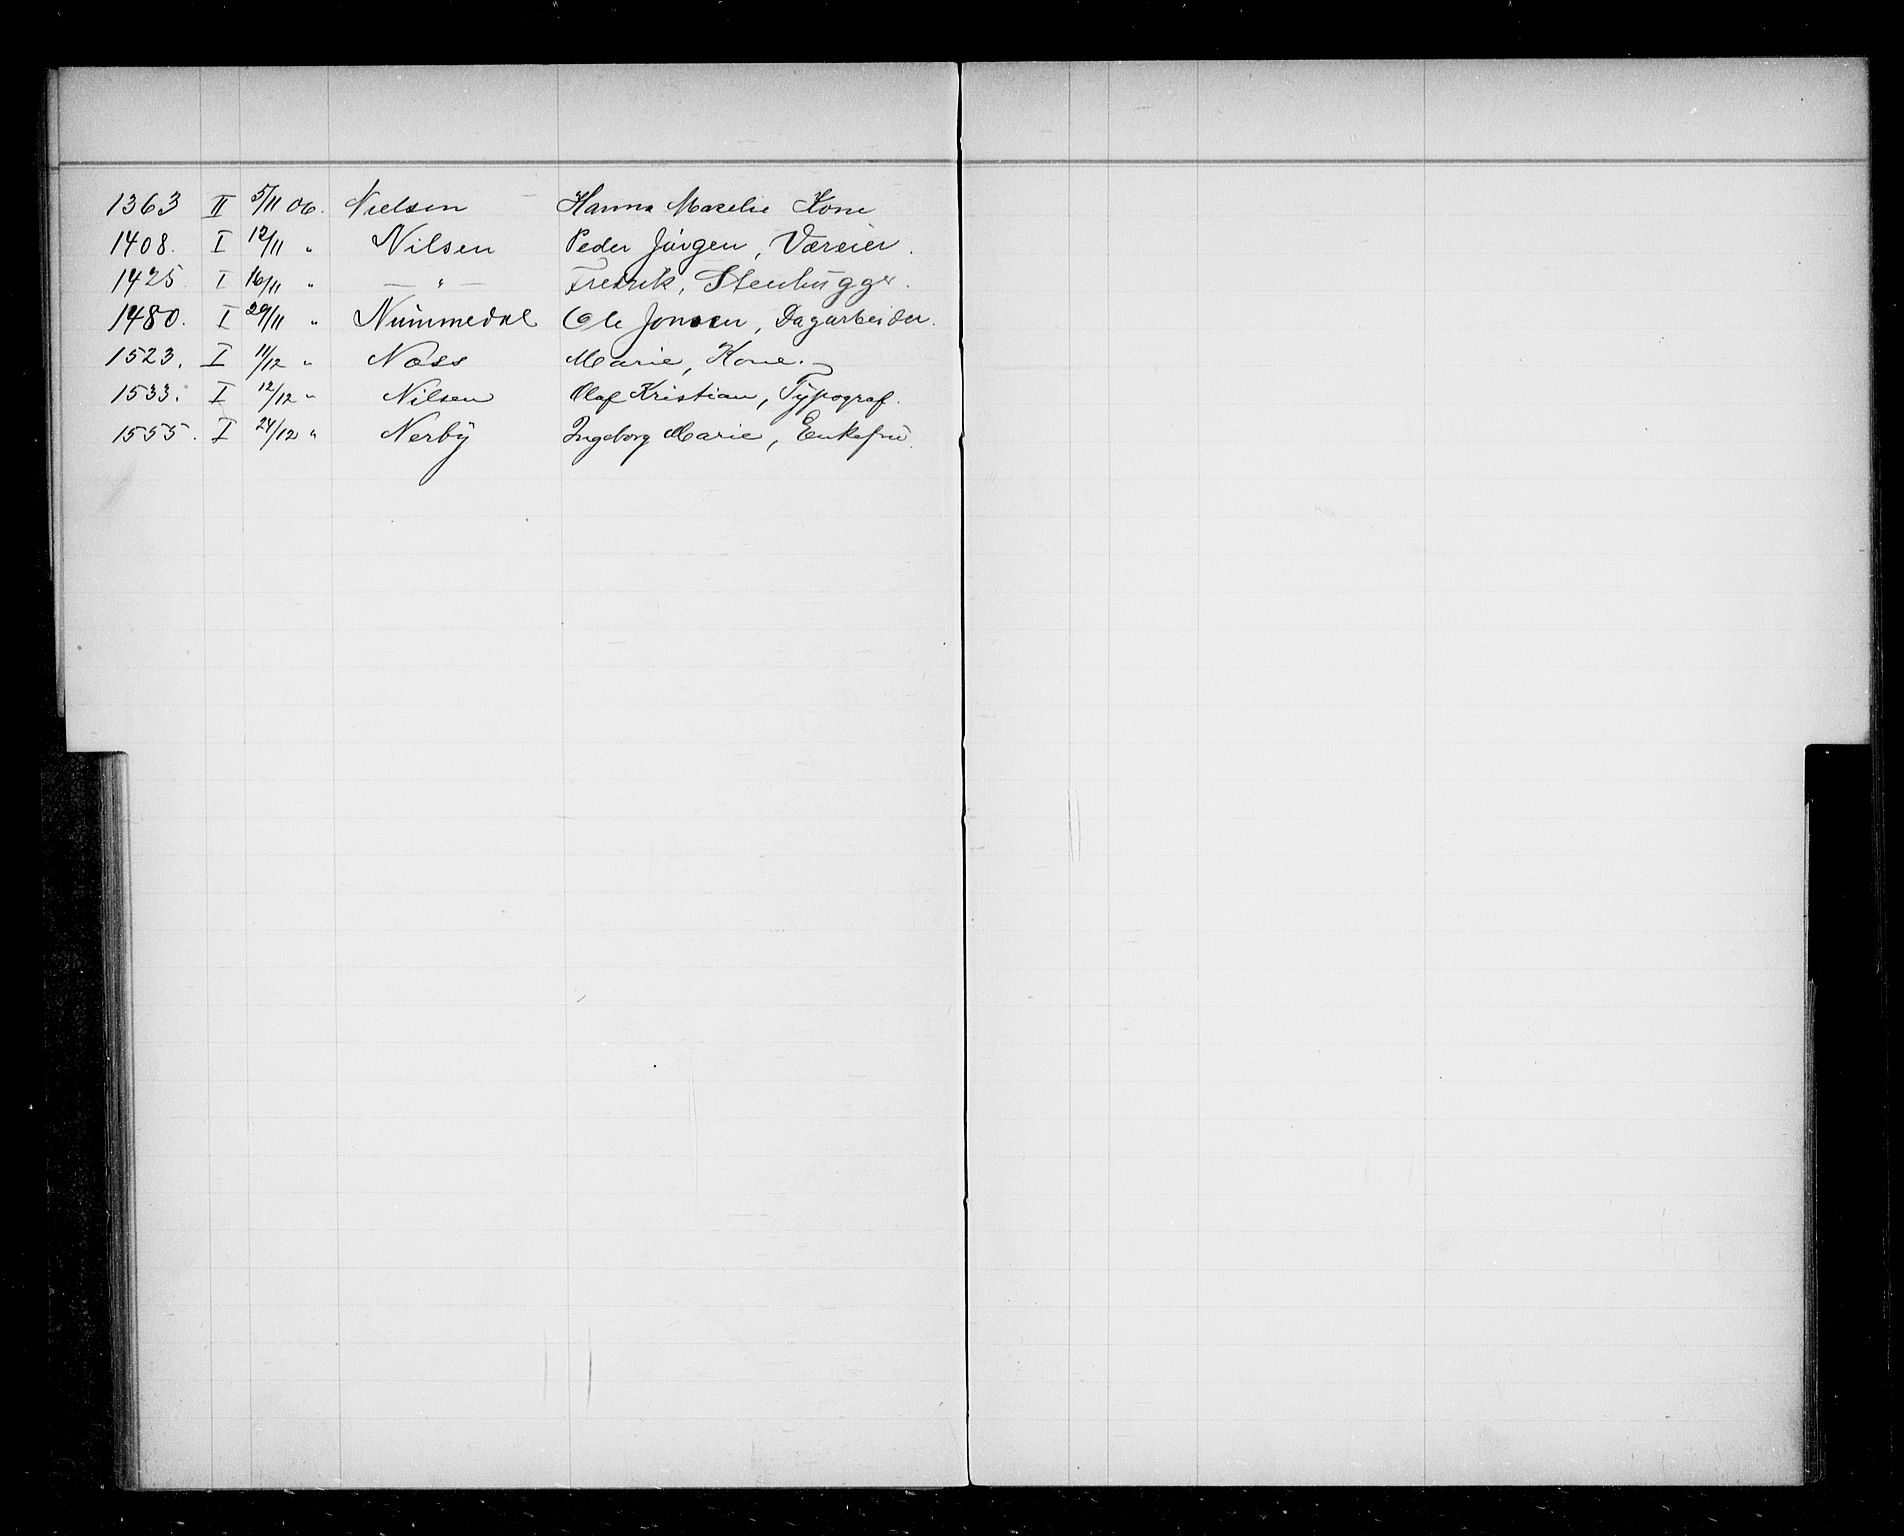 1363 II 5/11 06. Nielsen Hanna Mazelie Kone
1408. I 12/11 " Nilsen Peder Jürgen, Væreier.
1425. I 16/11 " — " — Fredrik, Stenhugger.
1480. I 29/11 " Nummedal Ole Jonsen, Dagarbeider.
1523. I 11/12 " Næss Marie, Kone.
1533. I 12/12 " Nilsen Olaf Kristian, Typograf.
1555. I 24/12 " Nerby Ingeborg Marie, Enkefru.